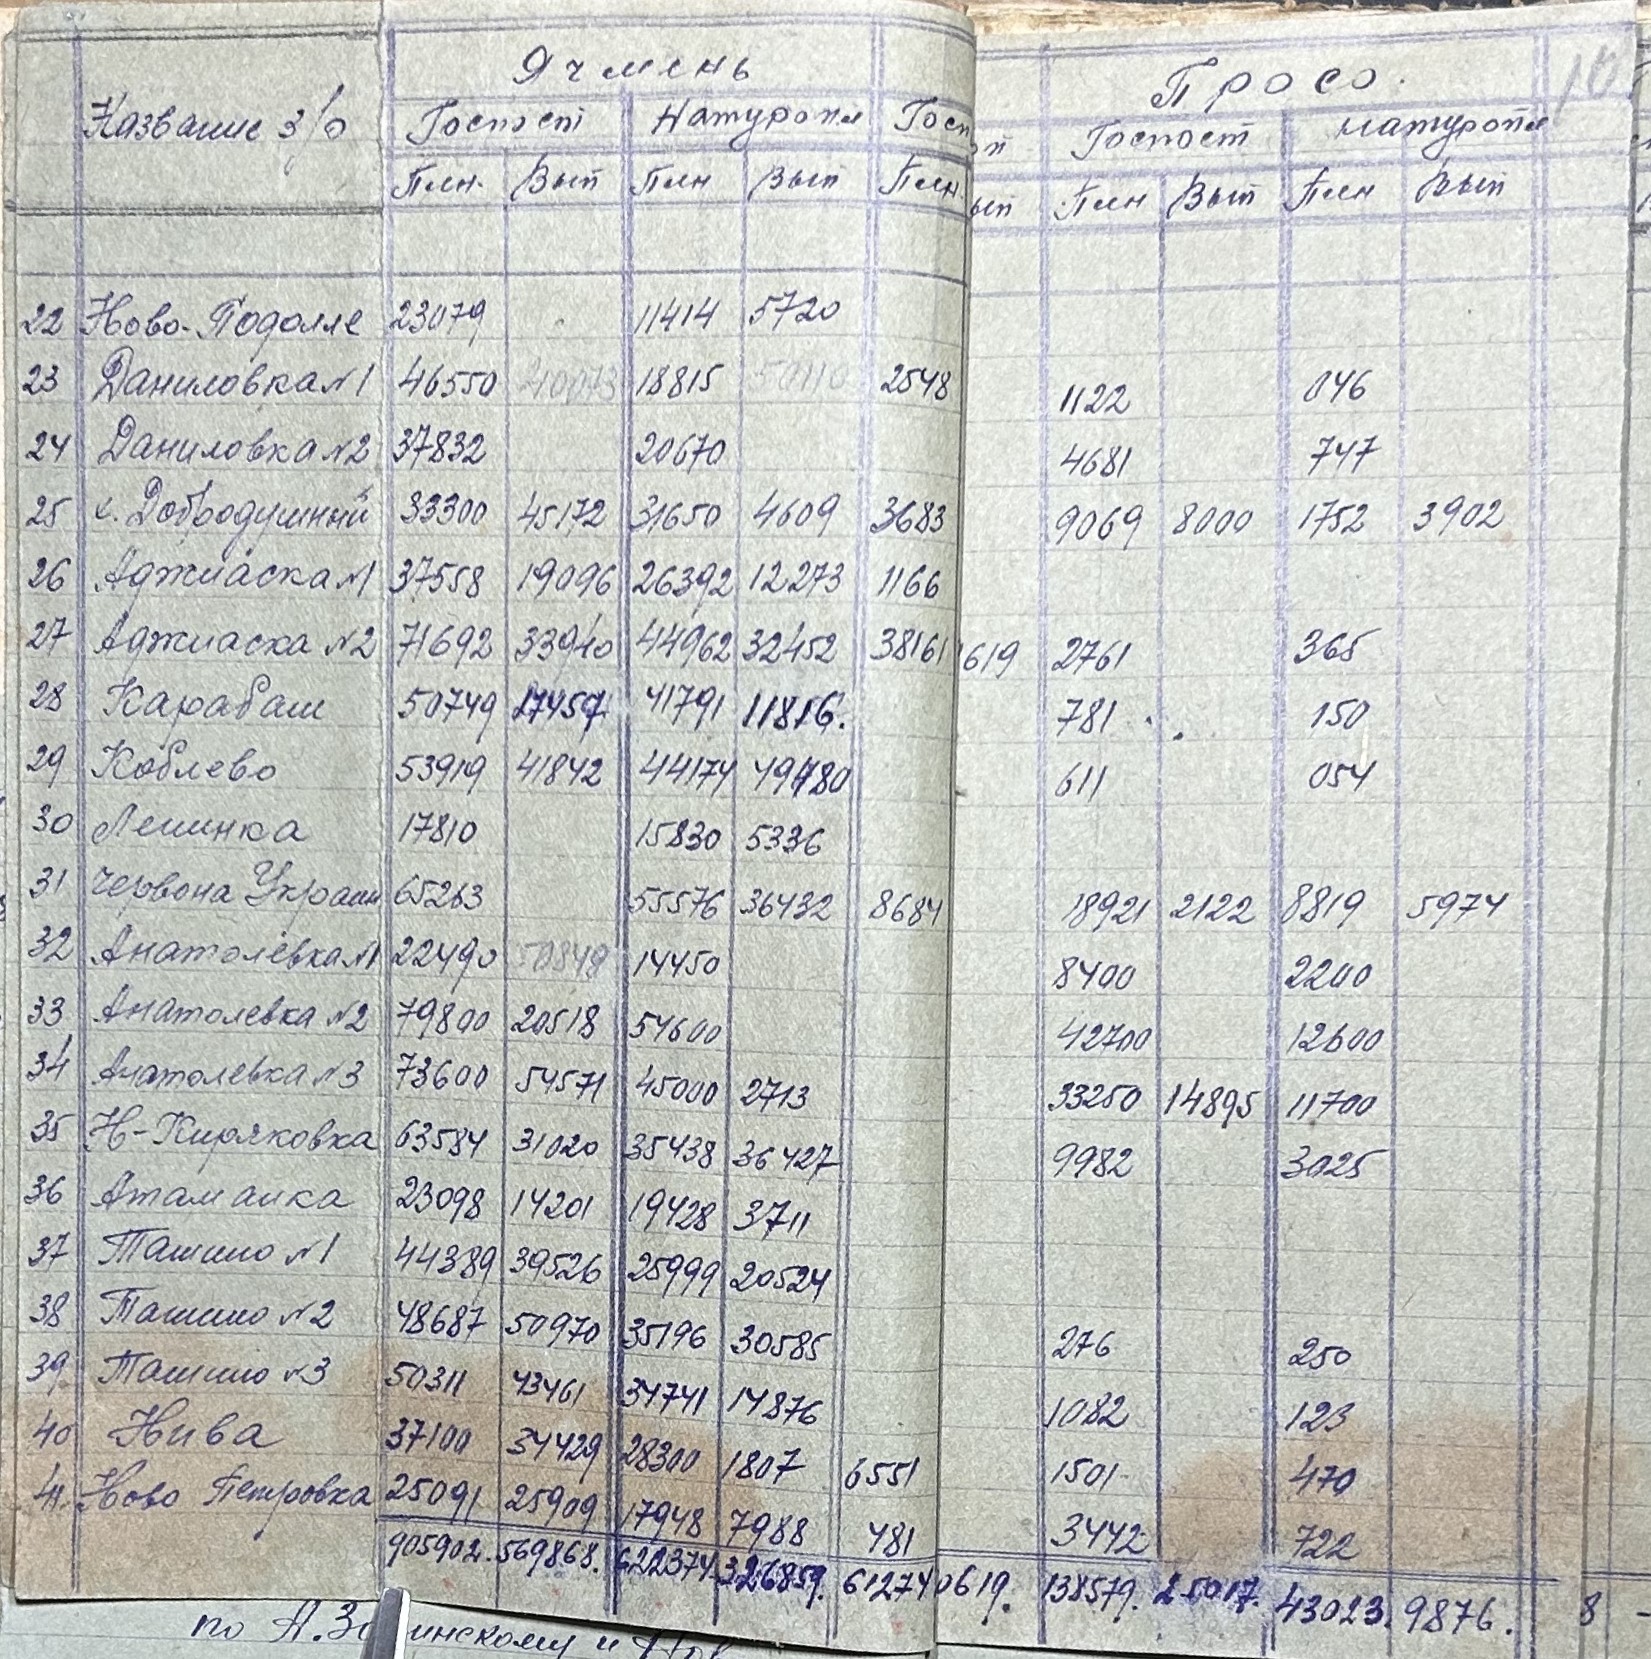 Ячмень Просо. 10
Название з/о Госпост Натуропл Госп оп Госпост Натуропл
План. Вып План Вып План. ып План Вып План Вып
22 Ново-Подолле 23079 11414 5720
23 Даниловка №1 46550 40073 18815 50110 2548 1122 046
24 Даниловка №2 37832 20670 4681 747
25 х. Добродушный 33300 45172 31650 4609 3683 9069 8000 1752 3902
26 Аджиаска №1 37558 19096 26392 12273 1166
27 Аджиаска №2 71692 33940 44962 32452 38161 1619 2761 365
28 Карабаш 50749 17457 41791 11816. 781 150
29 Коблево 53919 41842 44174 49780 611 054
30 Ленинка 17810 15830 5336
31 Червона Украин 65263 55576 36432 8684 18921 2122 8819 5974
32 Анатолевка №1 22490 50848 14450 8400 2200
33 Анатолевка №2 79800 20518 54600 42700 12600
34 Анатолевка №3 73600 54571 45000 2713 33250 14895 11700
35 Н-Киряковка 63584 31020 35438 36427 9982 3025
36 Атаманка 23098 14201 19428 3711
37 Ташино №1 44389 39526 25999 20524
38 Ташино №2 48687 50970 35196 30585 276 250
39. Ташино №3 50311 43461 34741 14876 1082 123
40 Нива 37100 34429 28300 1807 6551 1501 470
41. Ново Петровка 25091 25909 17948 7988 481 3442 722
905902. 569868. 622374 326859. 61274 0619. 138579. 25017. 43023. 9876. 8
по А. инскому и